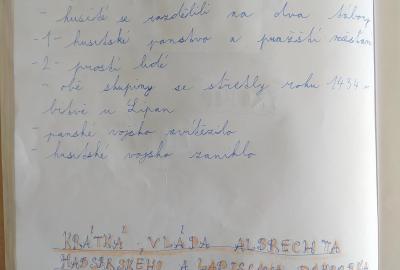 - husité se rozdělili na dva tábory
- 1 - husitské panstvo a pražští měšťané
- 2 - prostí lidé
- obě skupiny se střetly roku 1434 v
bitvě u Lipan
- panské vojsko zvítězilo
- husitské vojsko zaniklo
KRÁTKÁ VLÁDA ALBRECHTA
HABSBURSKÉHO A LADISLAVA POHROBKA